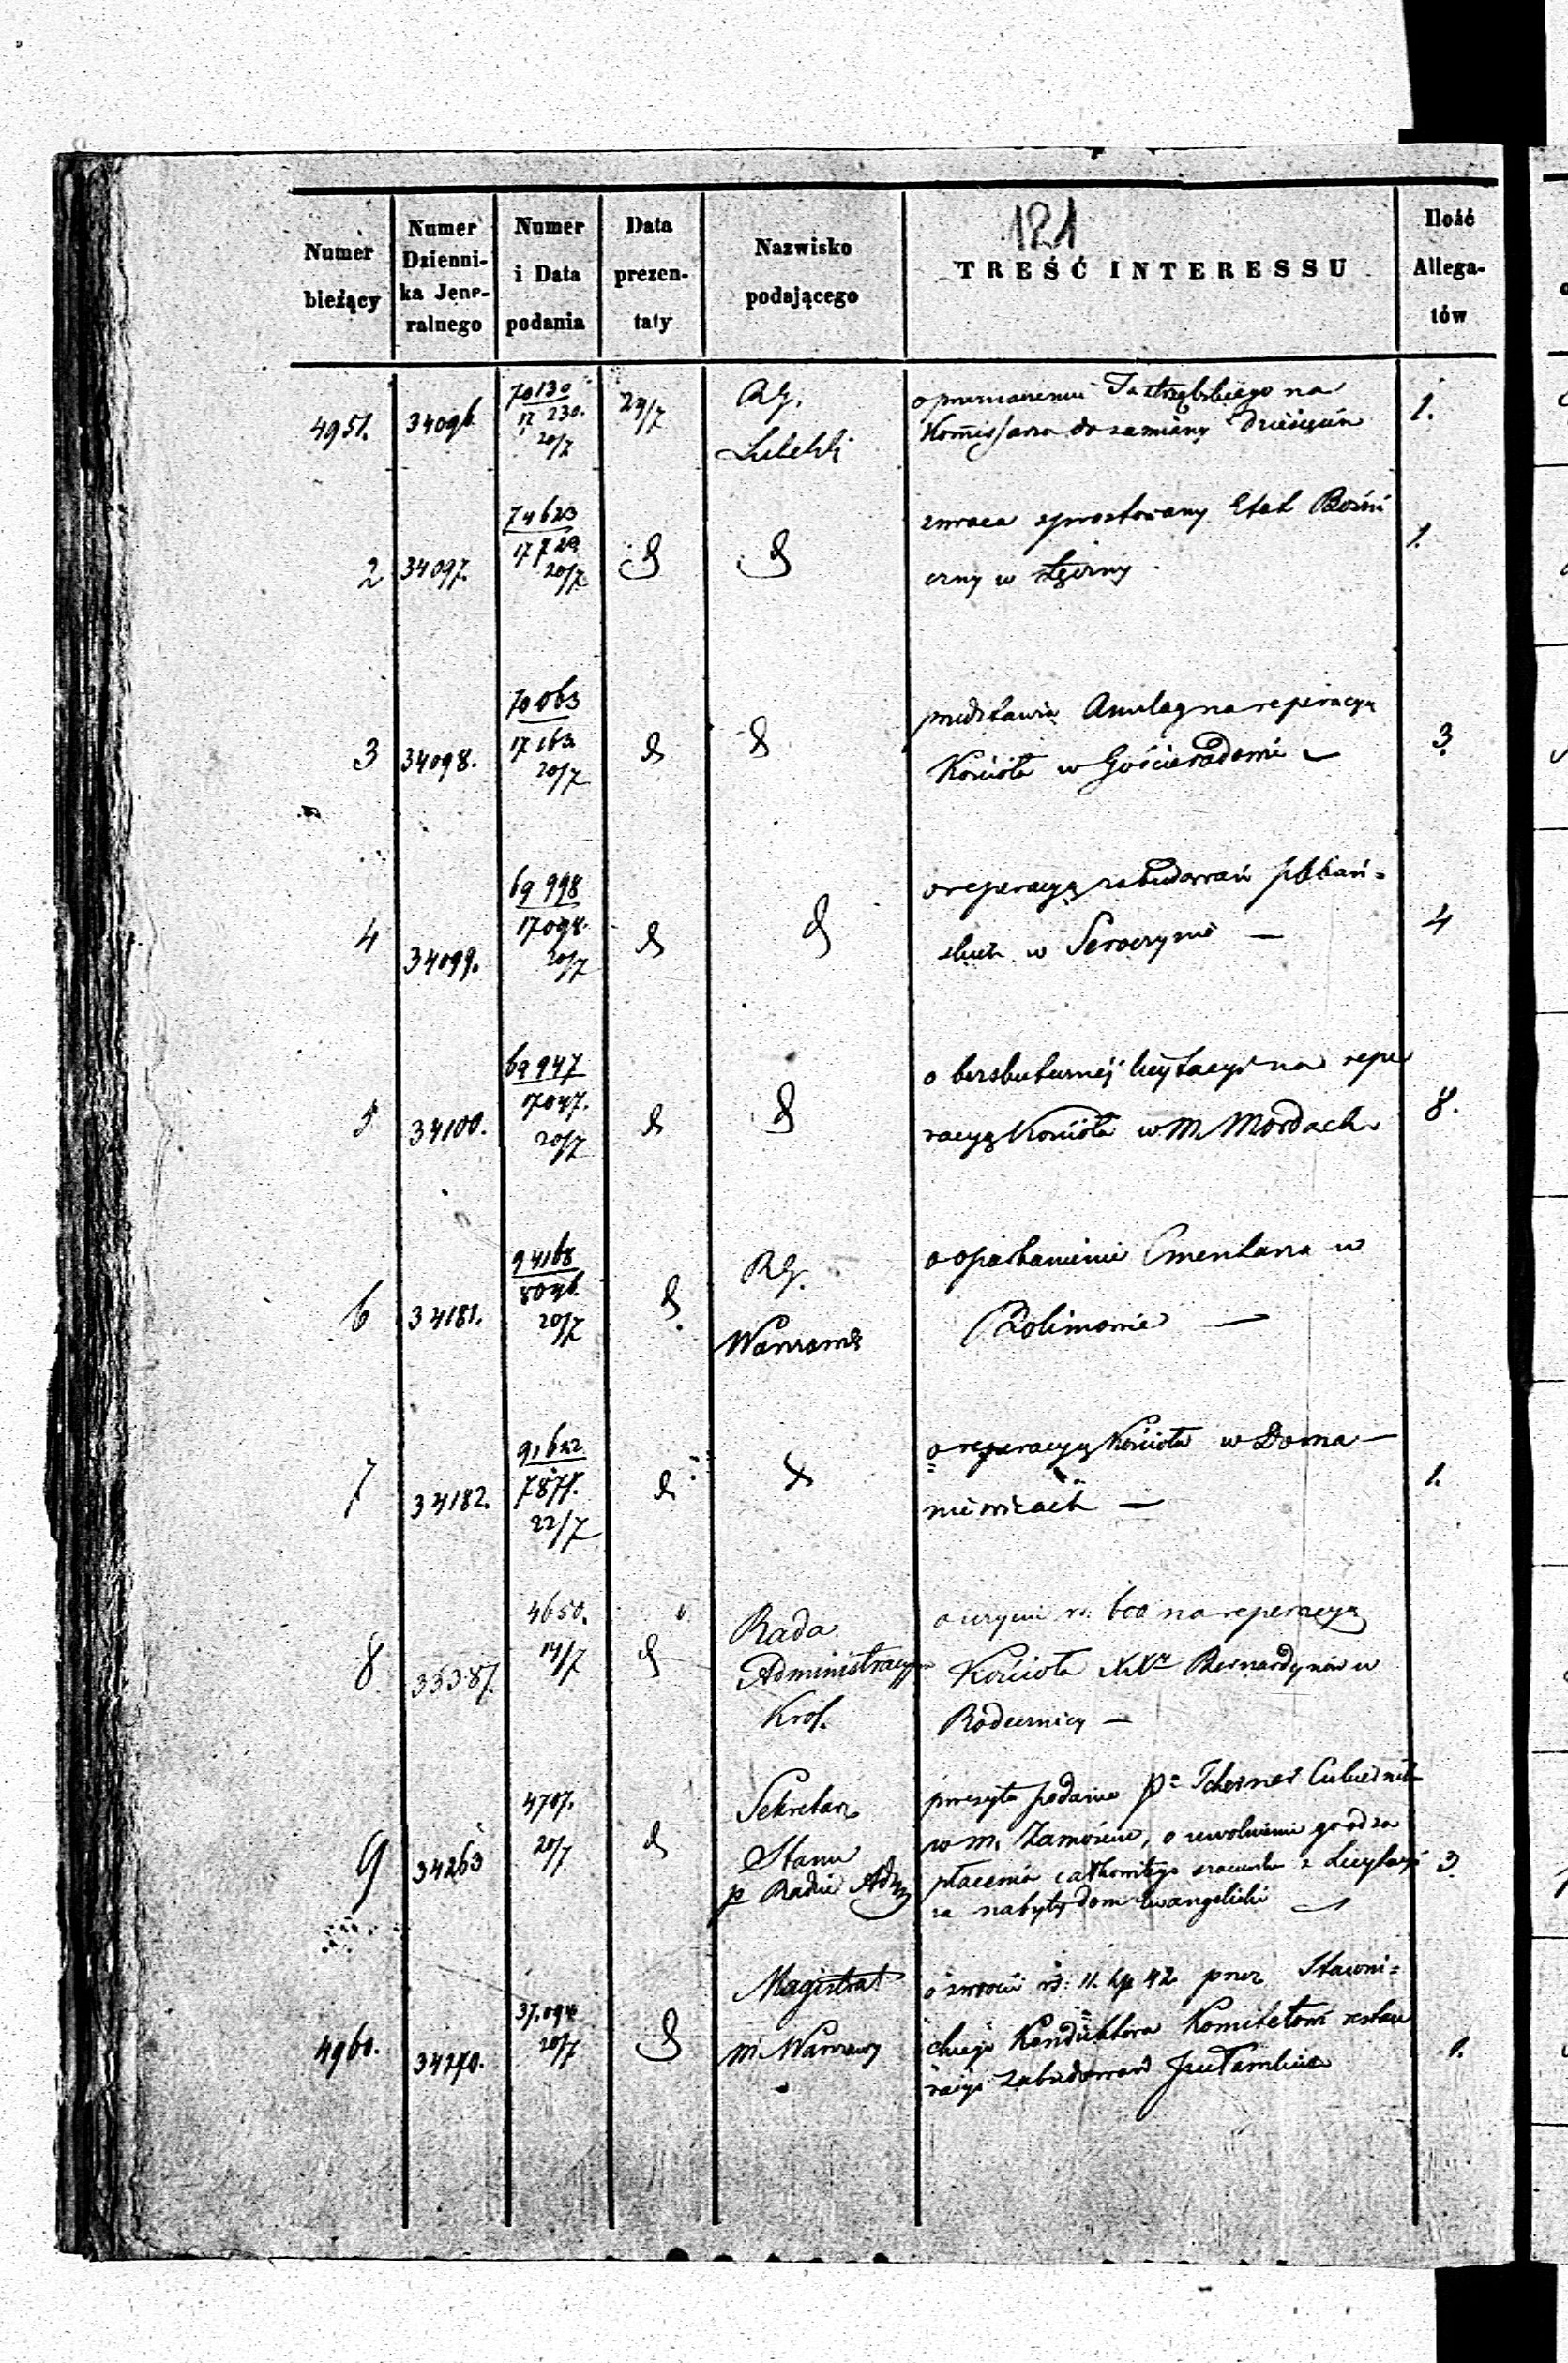 121
Numer bieżący
Numer Dzienni-ka Jene-ralnego
Numer i Data podania
Data prezen-taty
Nazwisko podającego
TREŚĆ INTERESSU
Ilość Allega-tów
4951. 34096. 70130 17 230. 20/7 29/7 RG. Lubelski
o przeznaczeniu Jastrzębskiego na
Kommissarza do zamiany Dziesięcin 1.
2 34097. 74623 20/7 d d
zwraca sprostowany Etat Bożni
czny w 1.
3 34098. 70063 17163 20/7 d d
przedstawia na reperacyą
Kościoła w Gościeradowie — 3
4 34099. 69998 17098. 20/7 d d
o reperacyą zabudowań plebań=
skich w Seroczynie — 4
5 34100. 69947 17047. 20/7 d d
o bezskutecznéj licytacyi na repe
racyą Kościoła w M. Mordach 8.
6 34181. 94168 8096. 20/7 d. RG. Warszawski
o oparkanienie Cmentarza w
Bolimowie —
7 34182. 7877. 22/7 d d
o reperacyą Kościoła w Doma—
niewicach — 1.
8 33387. 4650. 14/7 d Rada Administracyjna Król.
o użyciu rs. 600 na reperacyą
Kościoła XXn Bernardynów w
Radecznicy —
9 34263 4707. 20/7 d Sekretarz Stanu p Radzie Adm
przesyła podanie Pa Cukiernika
w m. Zamościu, o uwolnienie go od za
płacenia całkowitego szacunku z Licytacyi 3
za nabyty dom Ewangelicki —
4960. 34270. 37,094 20/7 d Magistrat m. Warszawy
o zwrocie rs. 11. kp 42 przez Sławni=
ckiego Konduktora Komitetowi restau
racyi zabudowań 1.